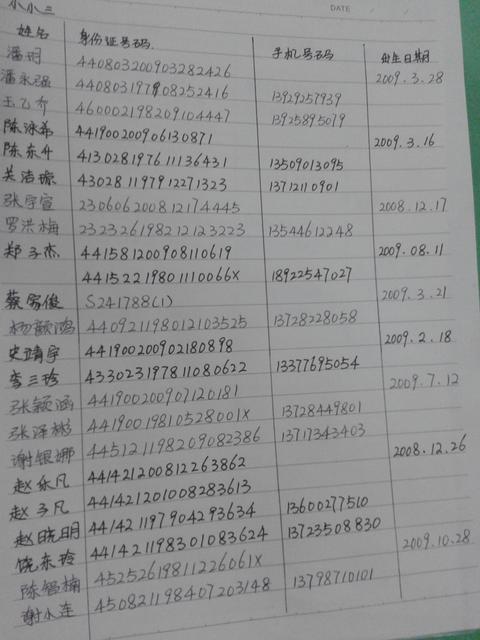 小小三 DATE
姓名 身份证号码 手机号码 出生日期
潘玥 440803200903282426 2009.3.28
潘永强 440803197908252416 13929257939
王乙乔 460002198209104447 13925895079
陈泳希 441900200906130871 2009.3.16
陈东升 413028197611136431 13509013095
吴洁琼 430281197912271323 13712110901
张宇宣 230606200812174445 2008.12.17
罗洪梅 232326198212123223 13544612248
郑子杰 441581200908110619 2009.08.11
44152219801110066X 18922547027
蔡家俊 S241788(1) 2009.3.21
杨颜鸿 440921198012103525 13728228058
史靖宇 441900200902180898 2009.2.18
李三珍 433023197811080622 13377695054
张颖涵 441900200907120181 2009.7.12
张泽彬 44190019810528001X 13728449801
谢银娜 445121198209082386 13717343403
赵乐凡 441421200812263862 2008.12.26
赵子凡 441421201008283613
赵晓明 441421197904293634 13600277510
饶东玲 441421198301083624 13723508830
陈智楠 45252619811226061X 2009.10.28
谢小连 450821198407203148 13798710101